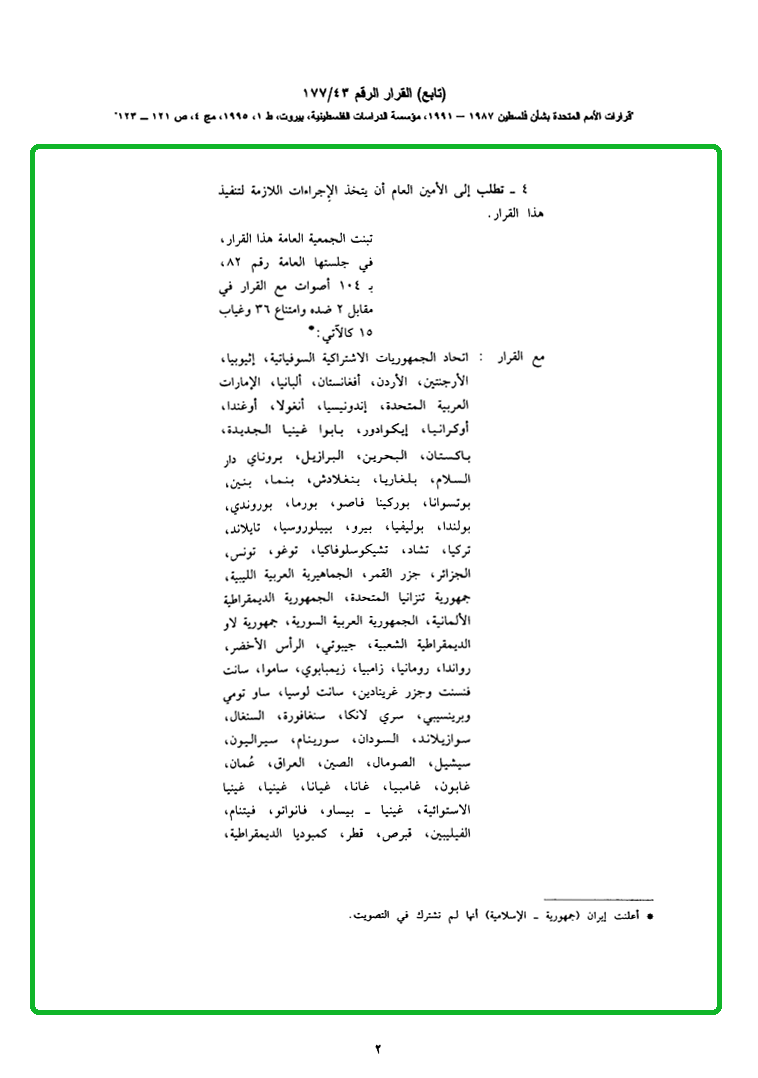 (تابع) القرار الرقم ١٧٧/٤٣
"قرارات الأمم المتحدة بشأن فلسطين ١٩٨٧ – ١٩٩١، مؤسسة الدراسات الفلسطينية، بيروت، ط ١، ١٩٩٥، مج ٤، ص ١٢١ – ١٢٣"
٤ ـ تطلب إلى الأمين العام أن يتخذ الإجراءات اللازمة لتنفيذ
هذا القرار.
تبنت الجمعية العامة هذا القرار،
في جلستها العامة رقم ٨٢،
بـ ١٠٤ أصوات مع القرار في
مقابل ٢ ضده وامتناع ٣٦ وغياب
١٥ كالآتي:*
مع القرار : اتحاد الجمهوريات الاشتراكية السوفياتية، إثيوبيا،
الأرجنتين، الأردن، أفغانستان، ألبانيا، الإمارات
العربية المتحدة، إندونيسيا، أنغولا، أوغندا،
أوكرانيا، إيكوادور، بابوا غينيا الجديدة،
باكستان، البحرين، البرازيل، بروناي دار
السلام، بلغاريا، بنغلادش، بنما، بنين،
بوتسوانا، بوركينا فاصو، بورما، بوروندي،
بولندا، بوليفيا، بيرو، بييلوروسيا، تايلاند،
تركيا، تشاد، تشيكوسلوفاكيا، توغو، تونس،
الجزائر، جزر القمر، الجماهيرية العربية الليبية،
جمهورية تنزانيا المتحدة، الجمهورية الديمقراطية
الألمانية، الجمهورية العربية السورية، جمهورية لاو
الديمقراطية الشعبية، جيبوتي، الرأس الأخضر،
رواندا، رومانيا، زامبيا، زيمبابوي، ساموا، سانت
فنسنت وجزر غرينادين، سانت لوسيا، ساو تومي
وبرينسيبي، سري لانكا، سنغافورة، السنغال،
سوازيلاند، السودان، سورينام، سيراليون،
سيشيل، الصومال، الصين، العراق، عُمان،
غابون، غامبيا، غانا، غيانا، غينيا، غينيا
الاستوائية، غينيا ـ بيساو، فانواتو، فيتنام،
الفيليبين، قبرص، قطر، كمبوديا الديمقراطية،
* أعلنت إيران (جمهورية ـ الإسلامية) أنها لم تشترك في التصويت.
٢